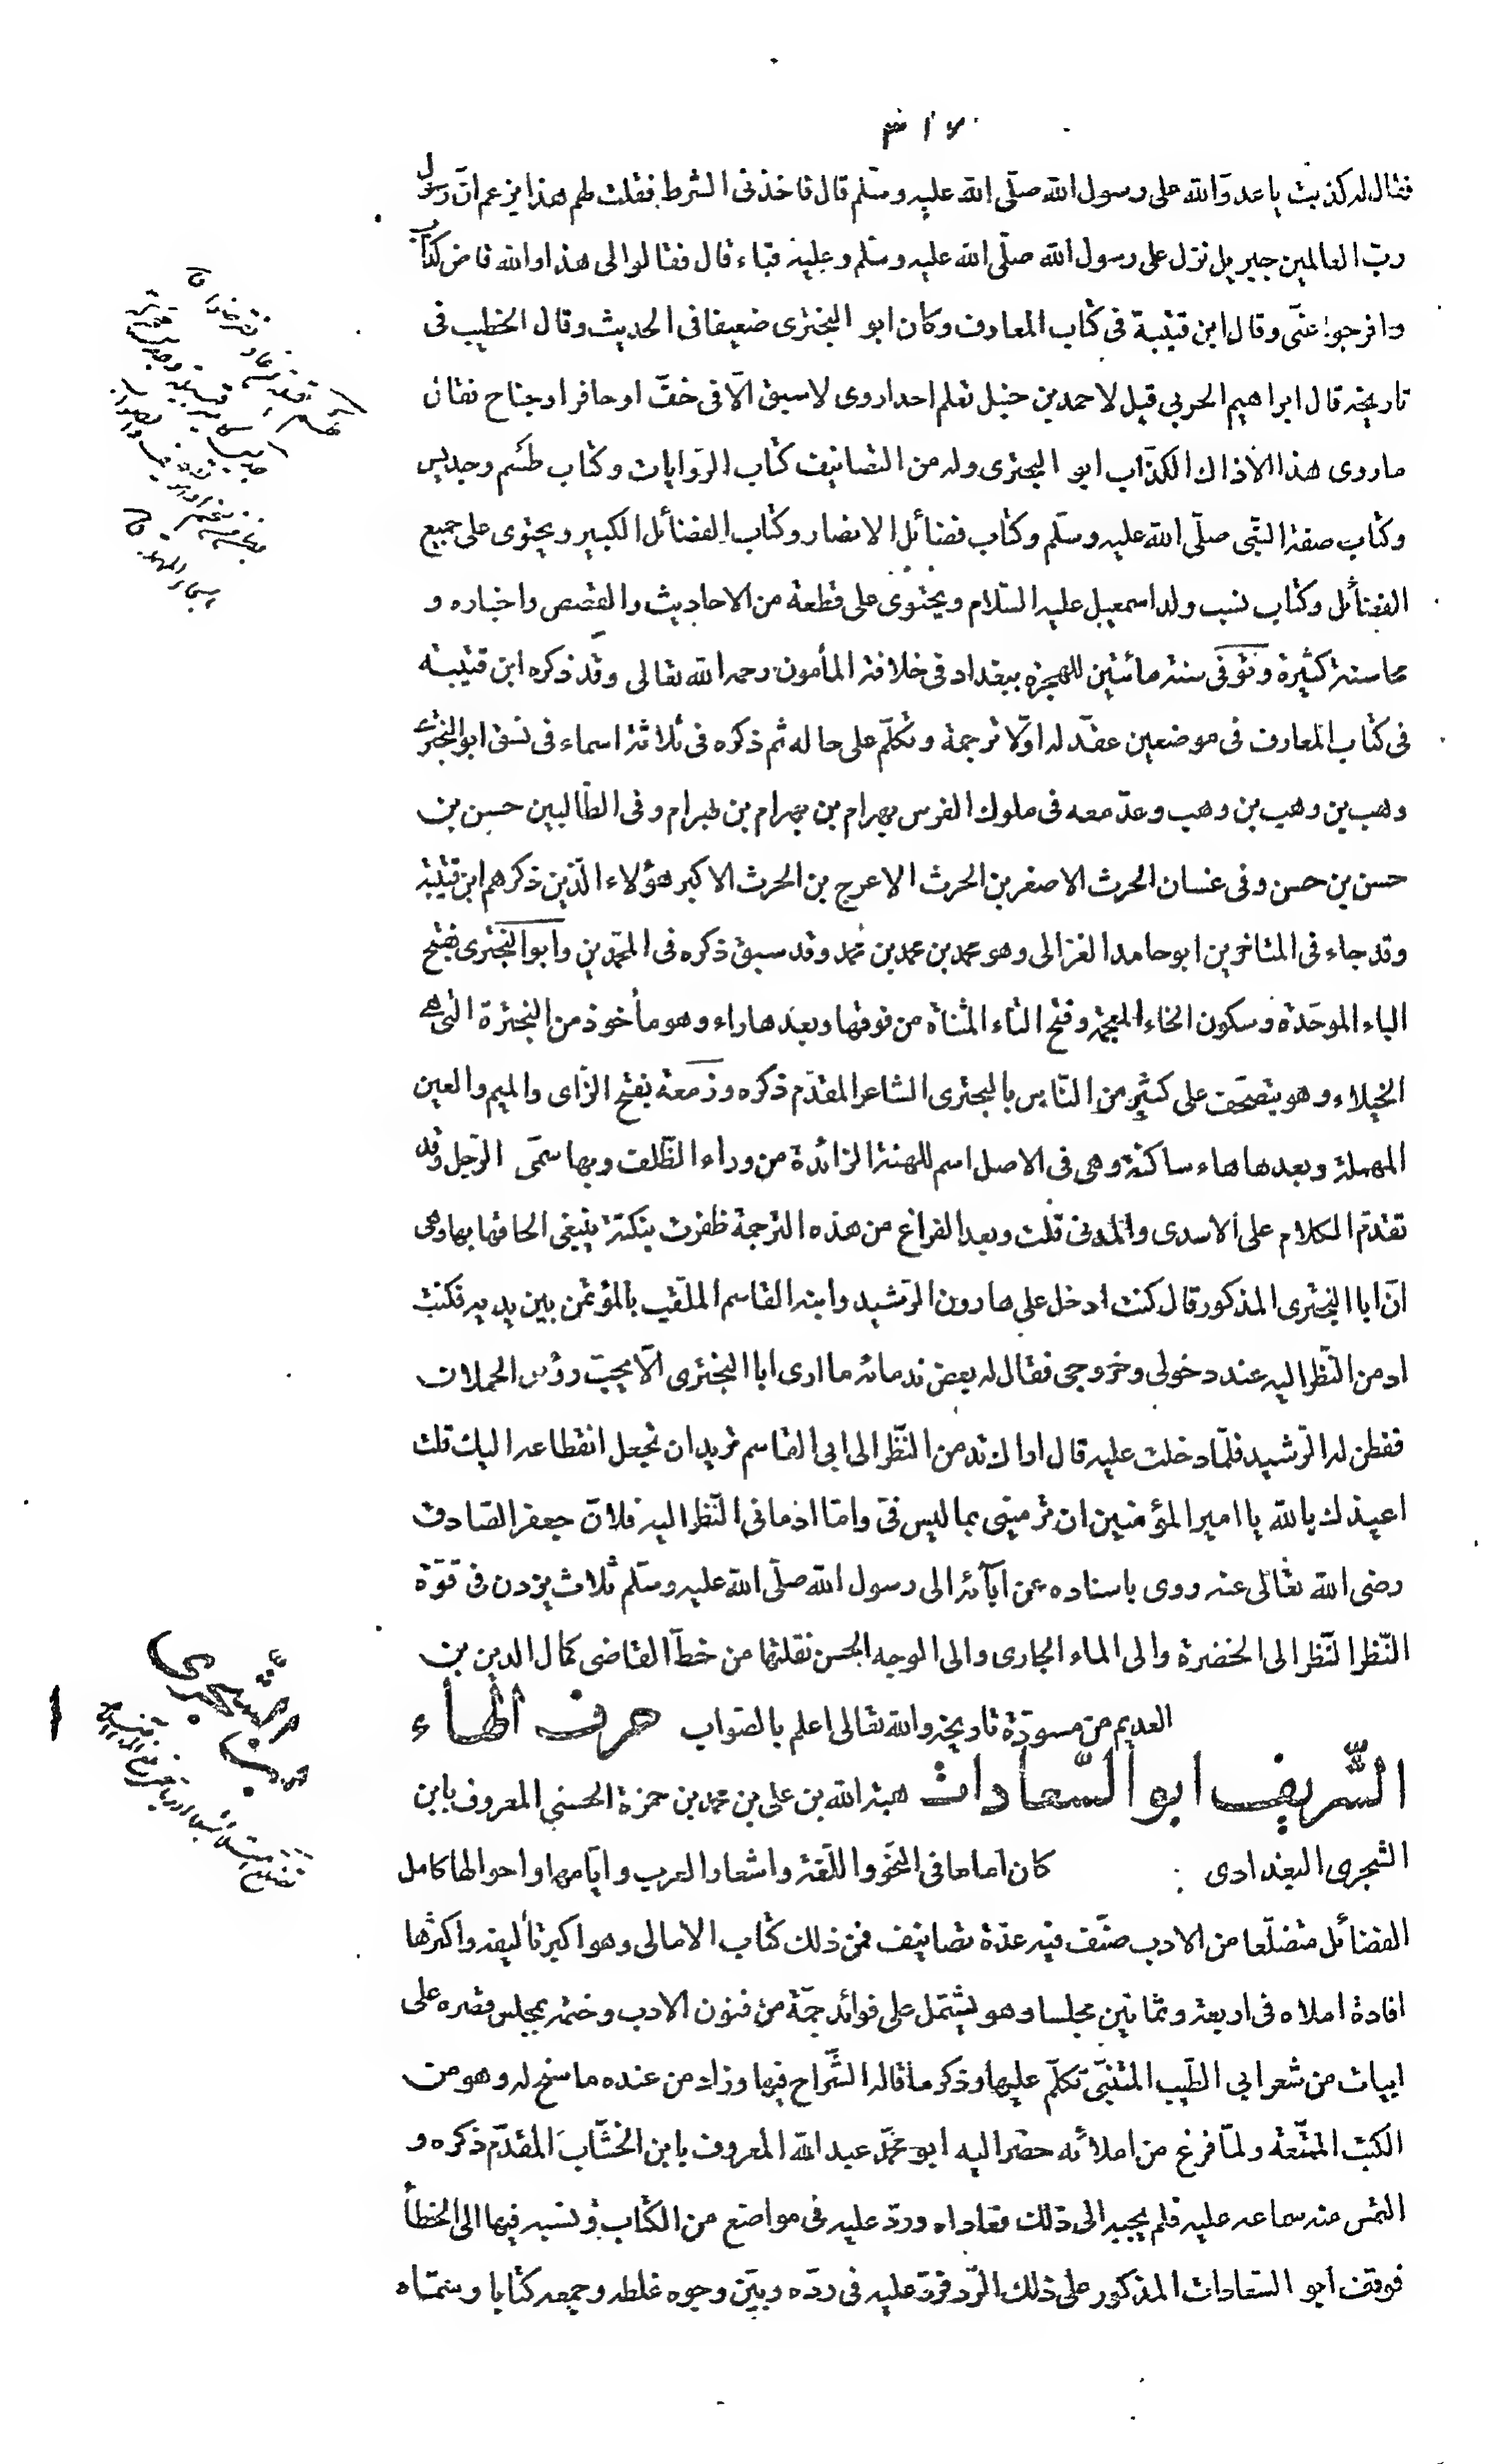 ٣١٧
فقال له كذبت يا عدو الله على رسول الله صلّى الله عليه وسلّم قال فاخذنى الشرط فقلت لهم هذا يزعم انّ رسول
ربّ العالمين جبريل نزل على رسول الله صلّى الله عليه وسلّم وعليه قباء قال فقالوا لى هذا والله قاض كذّاب
وافرجوا عنّى وقال ابن قتيبة فى كتاب المعارف وكان ابو البخترى ضعيفا فى الحديث وقال الخطيب فى
تاريخه قال ابراهيم الحربى قيل لاحمد بن حنبل تعلم احدا روى لا سبق الّا فى خفّ او حافر او جناح فقال
ما روى هذا الّا ذاك الكذّاب ابو البخترى وله من التصانيف كتاب الروايات وكتاب طسم وجديس
وكتاب صفة النّبى صلّى الله عليه وسلّم وكتاب فضائل الانصار وكتاب الفضائل الكبير ويحتوى على جميع
الفضائل وكتاب نسب ولد اسمعيل عليه السّلام ويحتوى على قطعة من الاحاديث والقصص واخباره و
محاسنه كثيرة وتوفى سنة مائتين للهجرة ببغداد فى خلافة المأمون رحمه الله تعالى وقد ذكره ابن قتيبة
فى كتاب المعارف فى موضعين عقد له اوّلا ترجمة وتكلّم على حاله ثم ذكره فى ثلاثة اسماء فى نسق ابو البخترى
وهب بن وهب بن وهب وعدّ معه فى ملوك الفرس بهرام بن بهرام بن بهرام وفى الطّالبيين حسن بن
حسن بن حسن وفى غسان الحرث الاصغر بن الحرث الاعرج بن الحرث الاكبر هؤلاء الّذين ذكرهم ابن قتيبة
وقد جاء فى المتاخرين ابو حامد الغزالى وهو محمد بن محمد بن محمد وقد سبق ذكره فى المحمّدين وابو البخترى بفتح
الباء الموحّدة وسكون الخاء المعجمة وفتح التاء المثناة من فوقها وبعدها راء وهو مأخوذ من البخترة التى هى
الخيلاء وهو يتصحّف على كثير من النّاس بالبحترى الشاعر المقدّم ذكره وزمعة بفتح الزّاى والميم والعين
المهملة وبعدها هاء ساكنة وهى فى الاصل اسم للهنة الزائدة من وراء الظّلف وبها سمّى الرّجل وقد
تقدّم الكلام على الاسدى والمدنى قلت وبعد الفراغ من هذه الترجمة ظفرت بنكتة ينبغى الحاقها بها وهى
انّ ابا البخترى المذكور قال كنت ادخل على هارون الرّشيد وابنه القاسم الملقّب بالمؤتمن بين يديه فكنت
ادمن النّظر اليه عند دخولى وخروجى فقال له بعض ندمائه ما ارى ابا البخترى الّا يحبّ رؤس الحملان
ففطن له الرّشيد فلمّا دخلت عليه قال اراك تدمن النّظر الى ابى القاسم تريد ان تجعل انقطاعه اليك قلت
اعيذك بالله يا امير المؤمنين ان ترمينى بما ليس فىّ وامّا ادمانى النّظر اليه فلانّ جعفر الصّادق
رضى الله تعالى عنه روى باسناده عن آبائه الى رسول الله صلّى الله عليه وسلّم ثلاث يزدن فى قوّة
النّظر النّظر الى الخضرة والى الماء الجارى والى الوجه الحسن نقلتها من خطّ القاضى كمال الدين بن
العديم من مسوّدة تاريخه والله تعالى اعلم بالصّواب حرف الهاء
الشّريف ابو السّعادات هبة الله بن على بن محمد بن حمزة الحسنى المعروف بابن
الشجرى البغدادى كان اماما فى النّحو واللّغة واشعار العرب وايّامها واحوالها كامل
الفضائل متضلّعا من الادب صنّف فيه عدّة تصانيف فمن ذلك كتاب الامالى وهو اكبر تأليفه واكثرها
افادة املاه فى اربعة وثمانين مجلسا وهو يشتمل على فوائد جمّة من فنون الادب وختمه بمجلس قصره على
ابيات من شعر ابى الطّيب المتنبّى تكلّم عليها وذكر ما قاله الشّراح فيها وزاد من عنده ما سنح له وهو من
الكتب الممتّعة ولمّا فرغ من املائه حضر اليه ابو محمّد عبد الله المعروف بابن الخشّاب المقدّم ذكره و
التمس منه سماعه عليه فلم يجبه الى ذلك فعاداه وردّ عليه فى مواضع من الكتاب ونسبه فيها الى الخطأ
فوقف ابو السّعادات المذكور على ذلك الرّد فردّ عليه فى ردّه وبيّن وجوه غلطه وجمعه كتابا وسمّاه
ابن الشّجرى